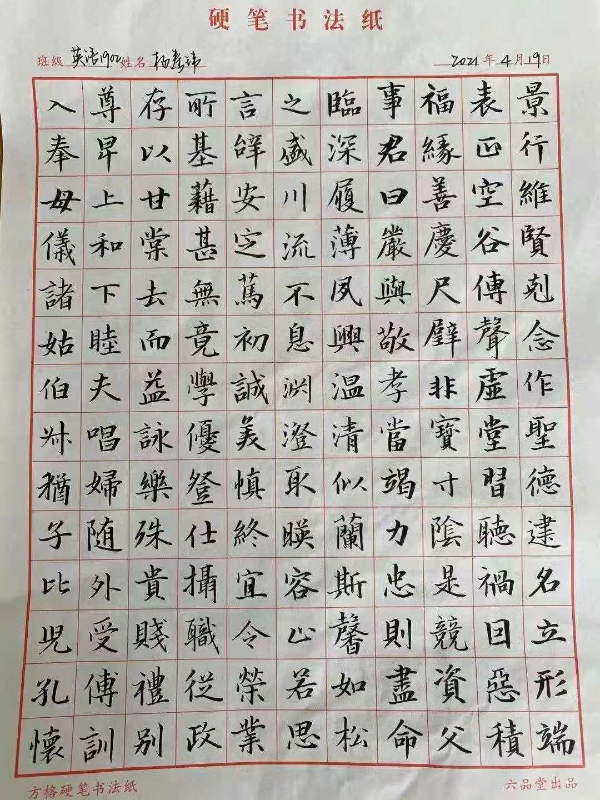 硬笔书法纸
班级 英语1902 姓名
2021年4月19日
景行維賢剋念作聖德建名立形端
表正空谷傳聲虛堂習聽禍因惡積
福緣善慶尺璧非寶寸陰是競資父
事君曰嚴與敬孝當竭力忠則盡命
臨深履薄夙興温清似蘭斯馨如松
之盛川流不息渊澄取暎容止若思
言辭安定篤初誠美慎終宜令榮業
所基藉甚無竟學優登仕攝職從政
存以甘棠去而益詠樂殊貴賤禮别
尊卑上和下睦夫唱婦随外受傅訓
入奉母儀諸姑伯叔猶子比兒孔懷
方格硬笔书法纸
六品堂出品